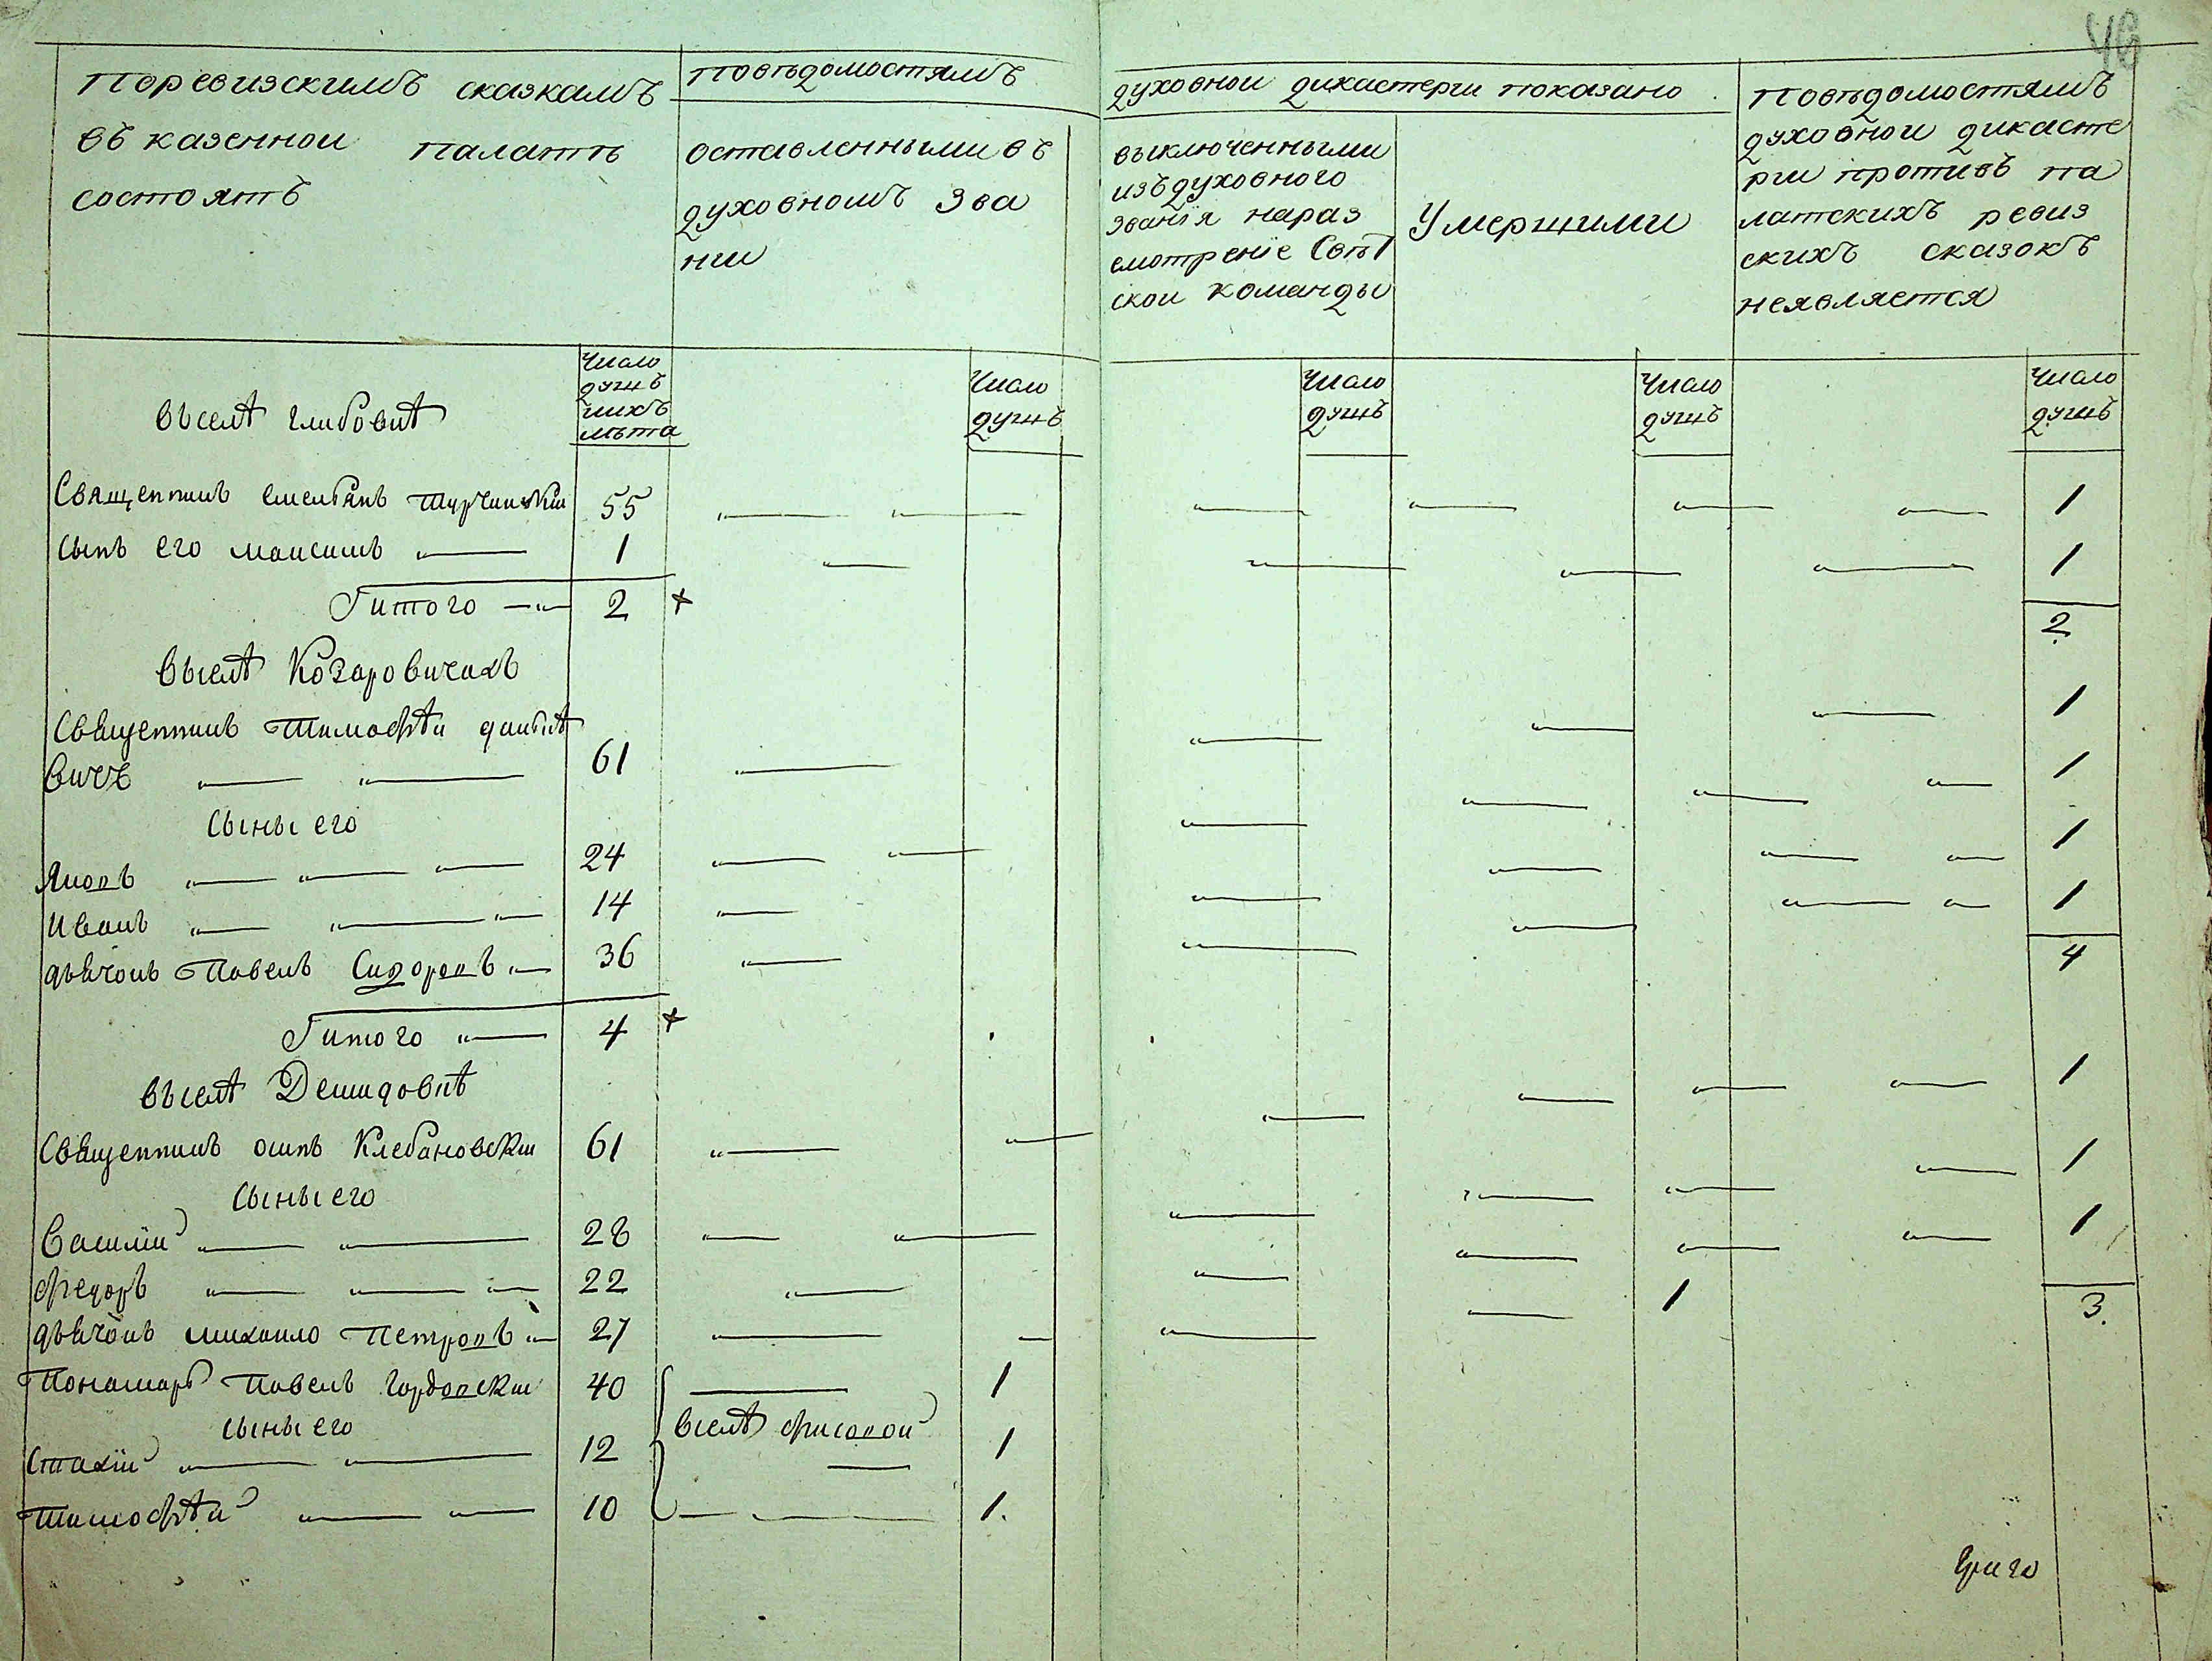 46
Поревизскимъ сказкамъ
въ казенной палатѣ
состоятъ
Повѣдомостямъ
оставленными въ
духовномъ зва
нии
духовнои дикастерии показано
выключенными
изъ духовного
званїя нараз
смотренїе Свѣт
скои команды
Умершими
Повѣдомостямъ
духовнои дикасте
рии противъ па
латскихъ ревиз
скихъ сказокъ
неявляется
Число
душъ
ихъ
лѣта
Число
душъ
Число
душъ
Число
душъ
Число
душъ
Въселѣ Глибовкѣ
Священникъ Емельянъ 55 1
сынъ его Максимъ 1 1
Итого 2 2
Въселѣ Козаровичахъ
Священникъ Тимофѣи
вичъ 61 1
Сыны его
Яковъ 24 1
Иванъ 14 1
дьячокъ Павелъ Сидоровъ 36 1
Итого 4 4
Въселѣ Демидовкѣ
Священникъ Осипъ Клебановски 61 1
Сыны его
Василїй 28 1
Федоръ 22 1
дьячокъ Михайло Петровъ 27 1 3
Пономарь Павелъ 40 1
сыны его
Стахїй 12 Вселѣ 1
Тимофѣй 10 1